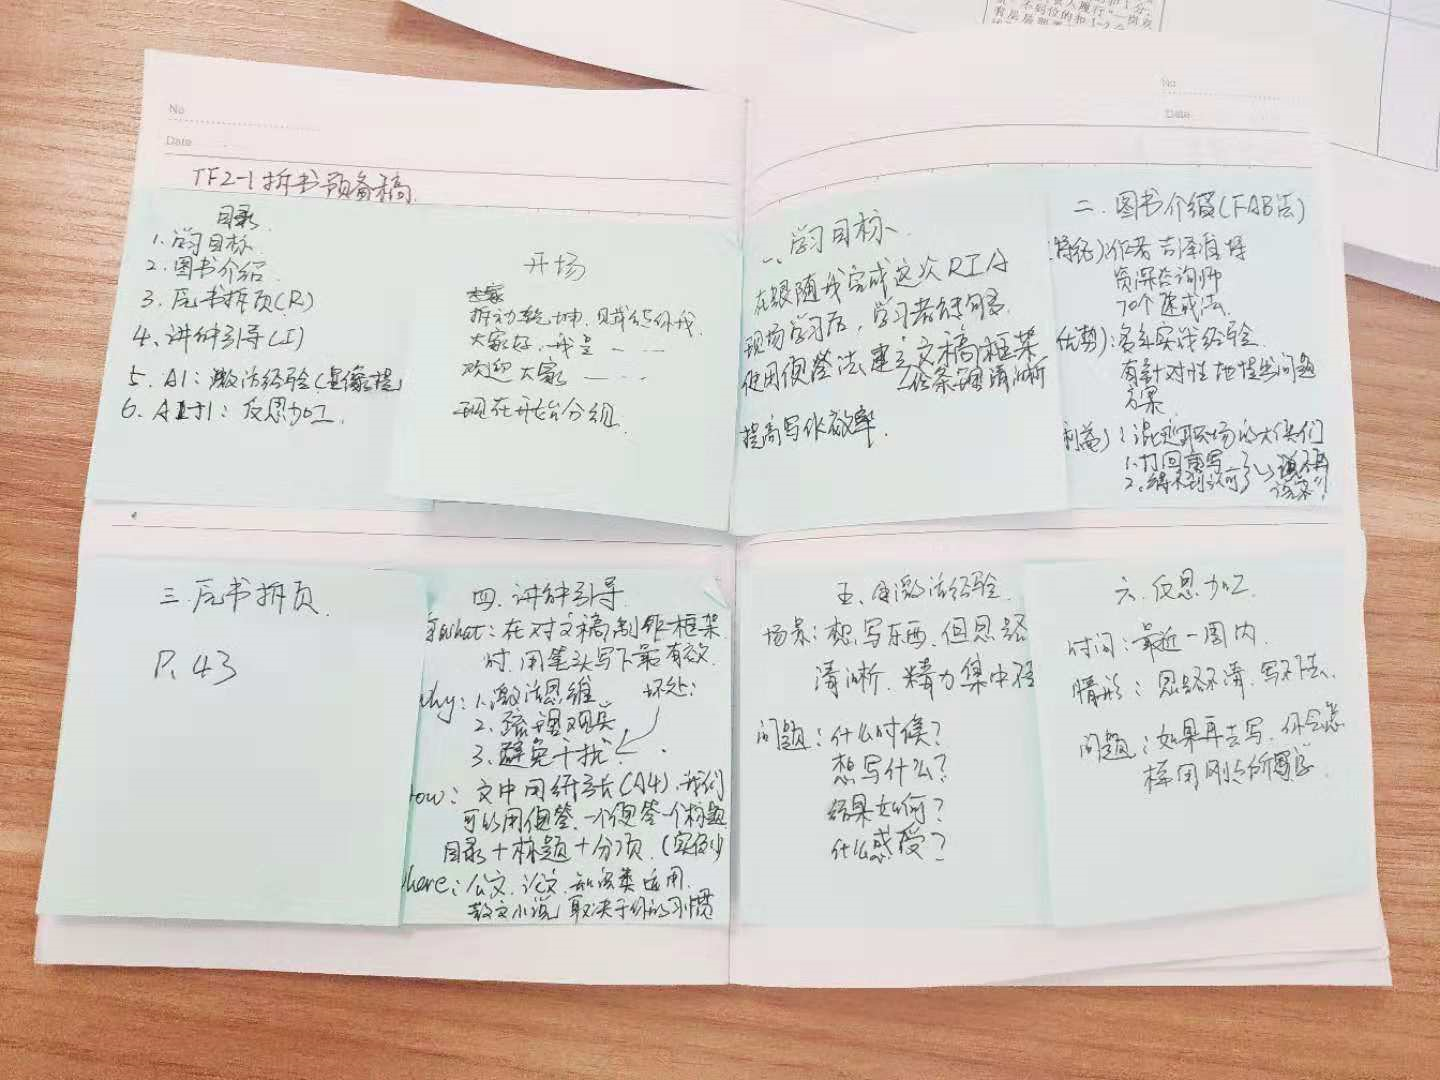 No
Date
TF2-1拆书预备稿
目录
1. 学习目标
2. 图书介绍
3. 原书拆页(R)
4. 讲解引导(I)
5. A1: 激活经验
6. A1: 反思加工
开场
拆动乾坤,
大家好,我是 — —
欢迎大家 — —
现在开始分组
一、学习目标
在跟随我完成这次RIA
现场学习后,学习者能够
使用便签法,建立文稿框架
条理清晰
提高写作效率
二.图书介绍(FAB法)
特征):作者吉泽准特
资深咨询师
70个速成法
优势):多年实战经验
有针对性地提出问题
方案
利益):混迹职场的大侠们
1.打回重写
2.得不到认可
三.原书拆页
P. 43
四.讲解引导
what: 在对文稿制作框架
时,用笔头写下最有效
why: 1.激活思维 坏处:
2.疏理观点
3.避免干扰
how: 文中用纸张(A4),我们
可以用便签,一个便签一个标题
目录+标题+分项.(实例
where: 公文、论文、知识类适用
散文小说,取决于你的习惯
五.激活经验
场景:想写东西,但思路
清晰,精力集中
问题:什么时候?
想写什么?
结果如何?
什么感受?
六.反思加工
时间:最近一周内
情形:思路不清,写不下去
问题:如果再去写,你会怎
样用刚才所学
No
Date